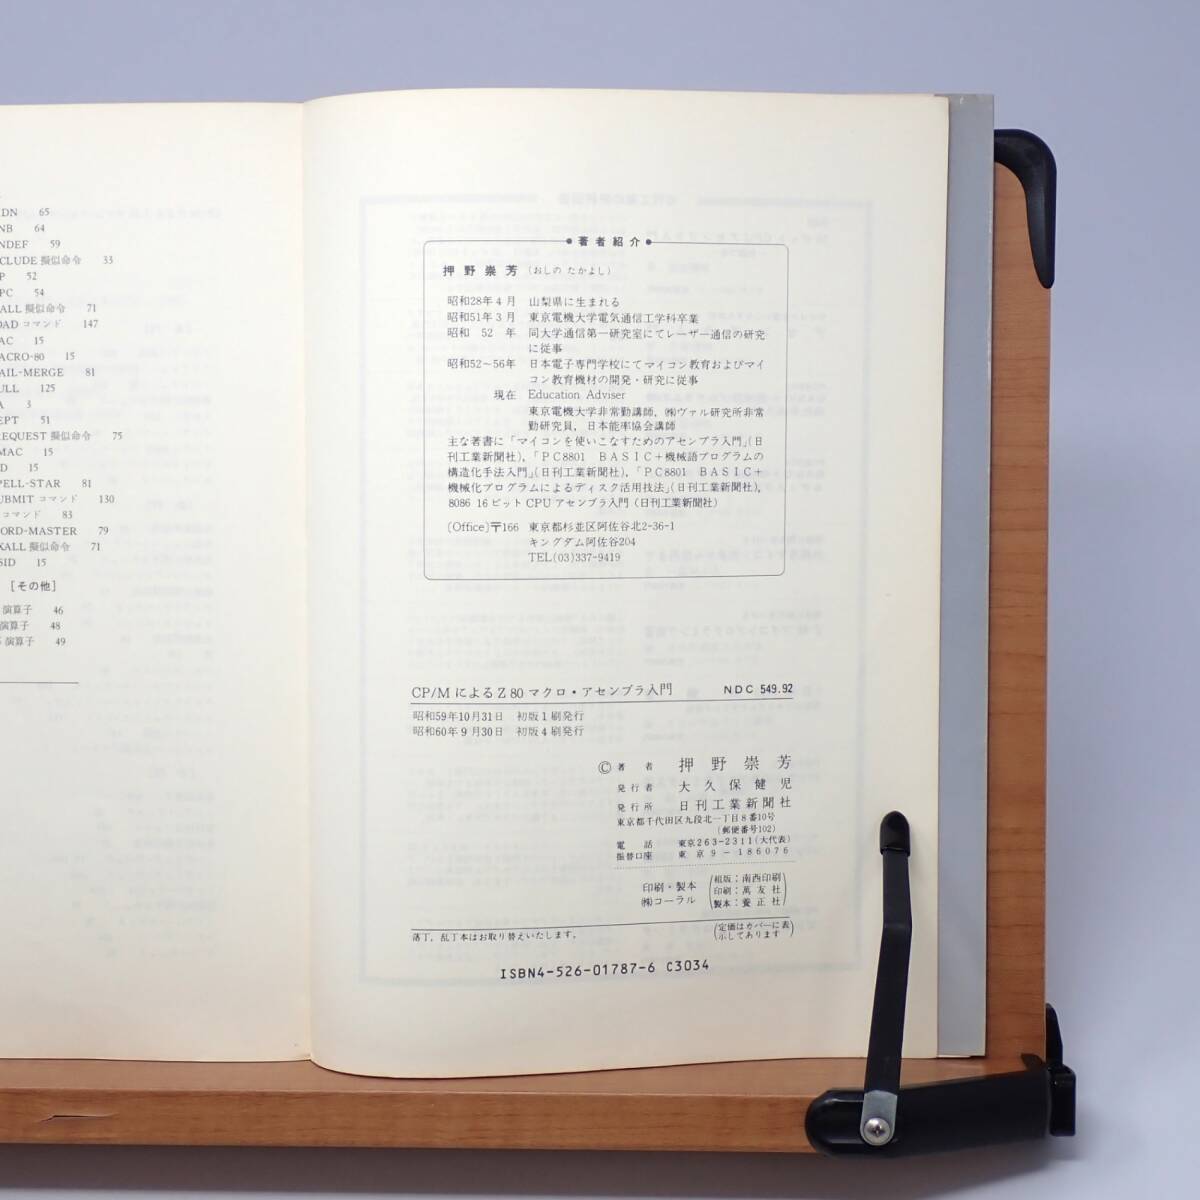 DN 65
NB 64
NDEF 59
CLUDE 擬似命令 33
P 52
PC 54
ALL 擬似命令 71
OAD コマンド 147
AC 15
ACRO-80 15
AIL-MERGE 81
ULL 125
A 3
EPT 51
REQUEST 擬似命令 75
MAC 15
D 15
PELL-STAR 81
UBMIT コマンド 130
コマンド 83
ORD-MASTER 79
XALL 擬似命令 71
SID 15
[その他]
演算子 46
演算子 48
演算子 49
●著者紹介●
押野崇芳 (おしの たかよし)
昭和28年4月 山梨県に生まれる
昭和51年3月 東京電機大学電気通信工学科卒業
昭和 52 年 同大学通信第一研究室にてレーザー通信の研究
に従事
昭和52〜56年 日本電子専門学校にてマイコン教育およびマイ
コン教育機材の開発・研究に従事
現在 Education Adviser
東京電機大学非常勤講師，㈱ヴァル研究所非常
勤研究員，日本能率協会講師
主な著書に「マイコンを使いこなすためのアセンブラ入門」(日
刊工業新聞社)，「PC8801 BASIC＋機械語プログラムの
構造化手法入門」(日刊工業新聞社)，「PC8801 BASIC＋
機械化プログラムによるディスク活用技法」(日刊工業新聞社)，
8086 16ビットCPUアセンブラ入門(日刊工業新聞社)
(Office)〒166 東京都杉並区阿佐谷北2-36-1
キングダム阿佐谷204
TEL(03)337-9419
CP/MによるZ80マクロ・アセンブラ入門 NDC 549.92
昭和59年10月31日 初版1刷発行
昭和60年9月30日 初版4刷発行
© 著者 押野崇芳
発行者 大久保健児
発行所 日刊工業新聞社
東京都千代田区九段北一丁目8番10号
(郵便番号102)
電話 東京263-2311(大代表)
振替口座 東京9-186076
印刷・製本
㈱コーラル
組版：南西印刷
印刷：萬友社
製本：養正社
落丁，乱丁本はお取り替えいたします。
(定価はカバーに表
示してあります)
ISBN4-526-01787-6 C3034